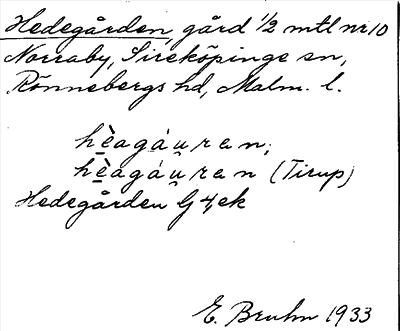 Hedegården, gård 1/2 mtl nr 10
Norraby, Sireköpinge sn,
Rönnebergs hd, Malm. l.
hèagáu̯ren,
hèagáu̯ren (Tirup)
Hedegården G 4, ek
E. Bruhn 1933